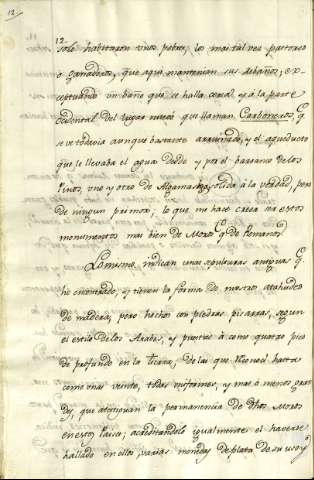 12.
12.
solo habitaron unos pobres, los mas tal vez pastores
o ganaderos, que aqui mantenian sus rebaños; ex-
ceptuando un baño que se halla cerca, y a la parte
ocidental del lugar nuevo que llaman Carboneros, q.
se ve todavia aunque bastante arruinado, y el aqueducto
que le llevaba el agua desde y por el barranco de los
Pinos, uno y otro de Algamasa solida a la verdad, pero
de ningun primor; lo que me hace creer ser estos
monumentos mas bien de Moros q. de Romanos.
Lo mismo indican unas sepulturas antiguas q.
he encontrado, y tienen la forma de nuestros atahudes
de madera; pero hechos con piedras pizarras, segun
el estilo de los Arabes, y puestos à como quatro pies
de profundo en la tierra; de las que reconoci hasta
como unas veinte, todas uniformes, y mas o menos gran
des, que atestiguan la permanencia de dhos Moros
en estos Paises; acreditandolo igualmente el haverse
hallado en ellos, varias monedas de plata de su uso, y